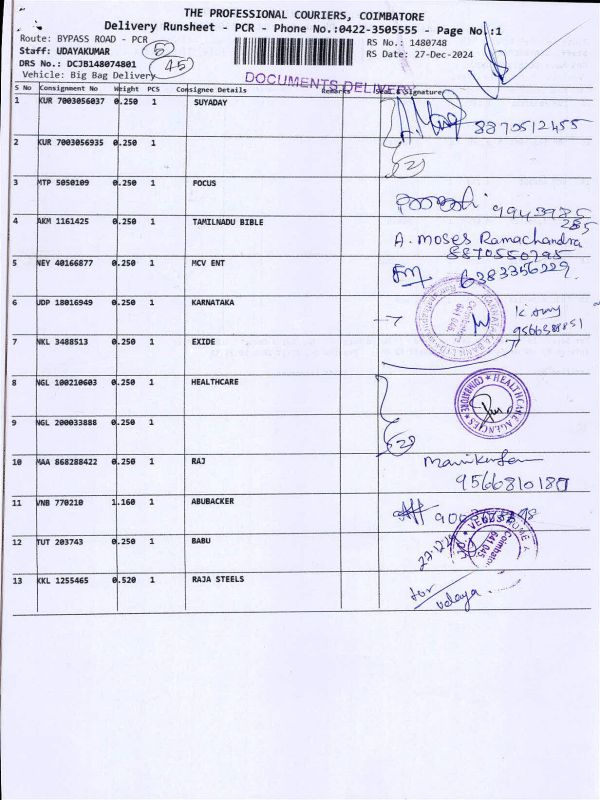 THE PROFESSIONAL COURIERS, COIMBATORE
Delivery Runsheet - PCR - Phone No.:0422-3505555 - Page No.:1
Route: BYPASS ROAD - PCR
RS No.: 1480748
Staff: UDAYAKUMAR
RS Date: 27-Dec-2024
DRS No.: DCJB148074801
45
Vehicle: Big Bag Delivery
DOCUMENTS DELIVER
S No Consignment No Weight PCS Consignee Details Remarks Seal & Signature
1 KUR 7003056037 0.250 1 SUYADAY
8870512455
2 KUR 7003056935 0.250 1
3 MTP 5050109 0.250 1 FOCUS
4 AKM 1161425 0.250 1 TAMILNADU BIBLE
A. Moses Ramachandra
8870550795
5 NEY 40166877 0.250 1 MCV ENT
6383356229
6 UDP 18016949 0.250 1 KARNATAKA
7 NKL 3488513 0.250 1 EXIDE
8 NGL 100210603 0.250 1 HEALTHCARE
HEALTHCARE AGENCIES * COIMBATORE *
9 NGL 200033888 0.250 1
10 MAA 868288422 0.250 1 RAJ
11 VNB 770210 1.160 1 ABUBACKER
12 TUT 203743 0.250 1 BABU
Coimbatore
641 045
13 KKL 1255465 0.520 1 RAJA STEELS
for
udaya